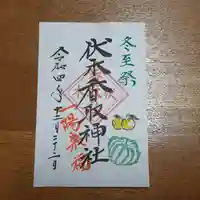 冬至祭
伏木香取神社
一陽来福
令和四年十二月二十二日